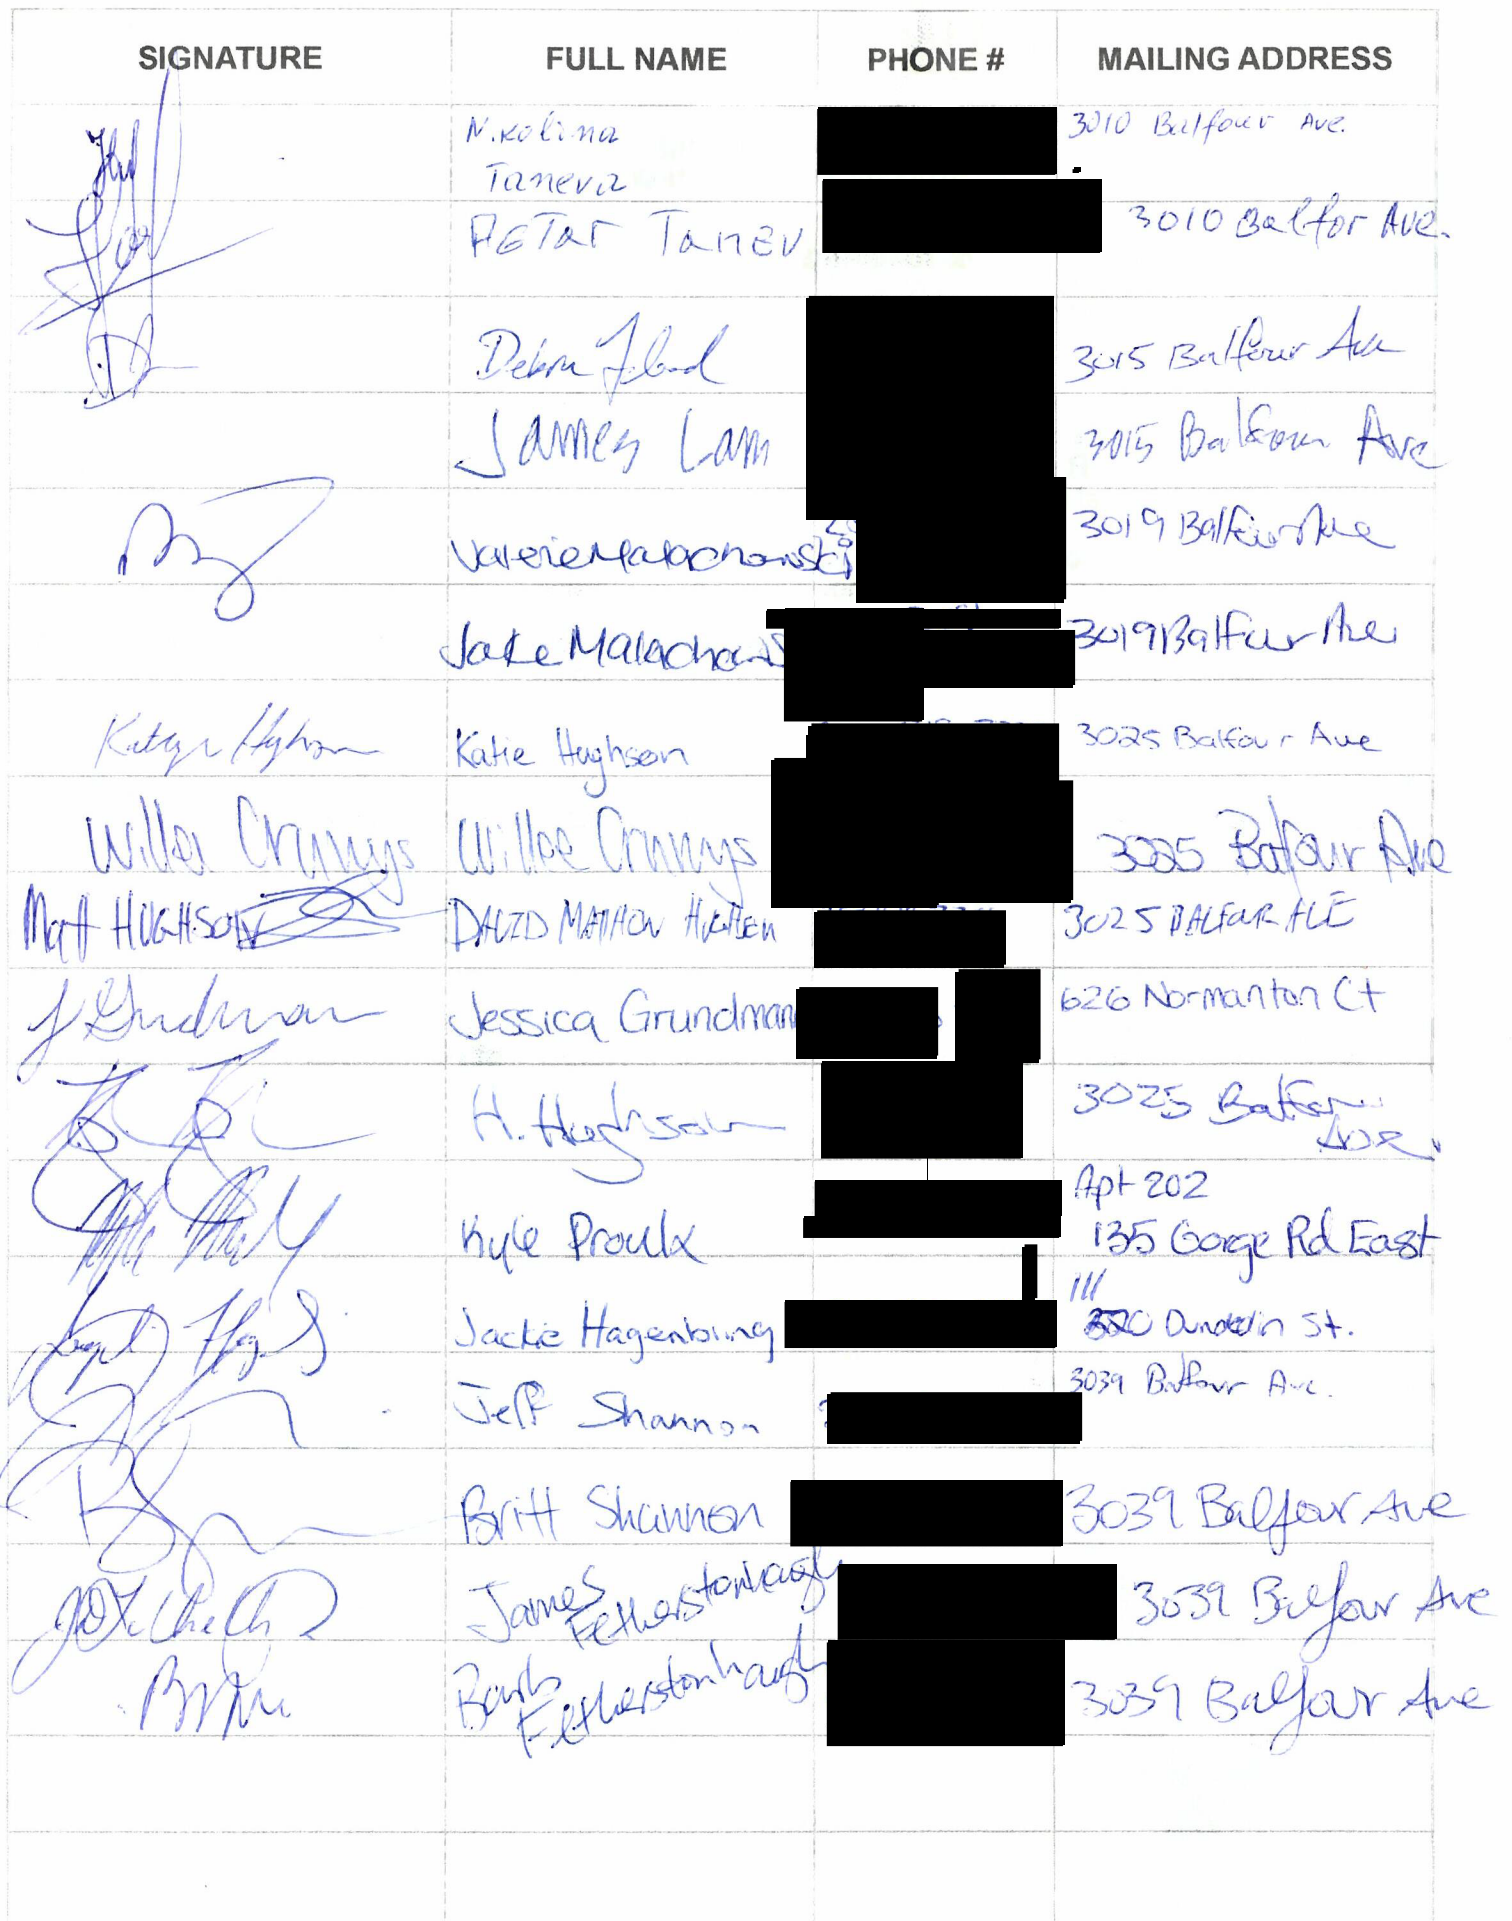 SIGNATURE FULL NAME PHONE # MAILING ADDRESS
Nikolina 3010 Balfour Ave.
Taneva
PETAR TANEV 3010 Balfor Ave.
Debra 3015 Balfour Ave
James Lam 3015 Balfour Ave
Valerie Malachowski 3019 Balfour Ave
Jake Malachows 3019 Balfour Ave
Katie Hughson 3025 Balfour Ave
Willa Crannys Willa Crannys 3025 Balfour Ave
Matt HUGHSON DAVID MATTHEW HUGHSON 3025 BALFOUR AVE
J Grundman Jessica Grundman 626 Normanton Ct
H. Hughson 3025 Balfour
Ave.
Apt 202
Kyle Proulx 135 Gorge Rd East
111
Jackie Hagenbring Dunedin St.
3039 Balfour Ave.
Jeff Shannon
Britt Shannon 3039 Balfour Ave
James 3039 Balfour Ave
Fetherstonhaugh
Barb 3039 Balfour Ave
Fetherstonhaugh